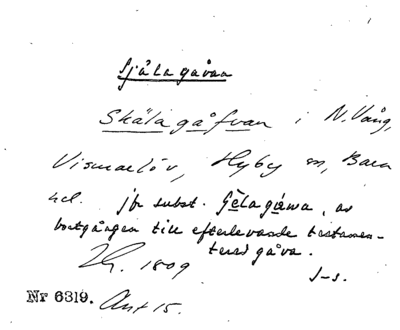 Själagåvan
Skälagåfvan i N. Vång,
Vismarlöv, Hyby sn, Bara
hd. jfr subst. sjèlagáwa, av
bortgången till efterlevande testamen-
terad gåva.
1809
J-s.
Nr 6319.